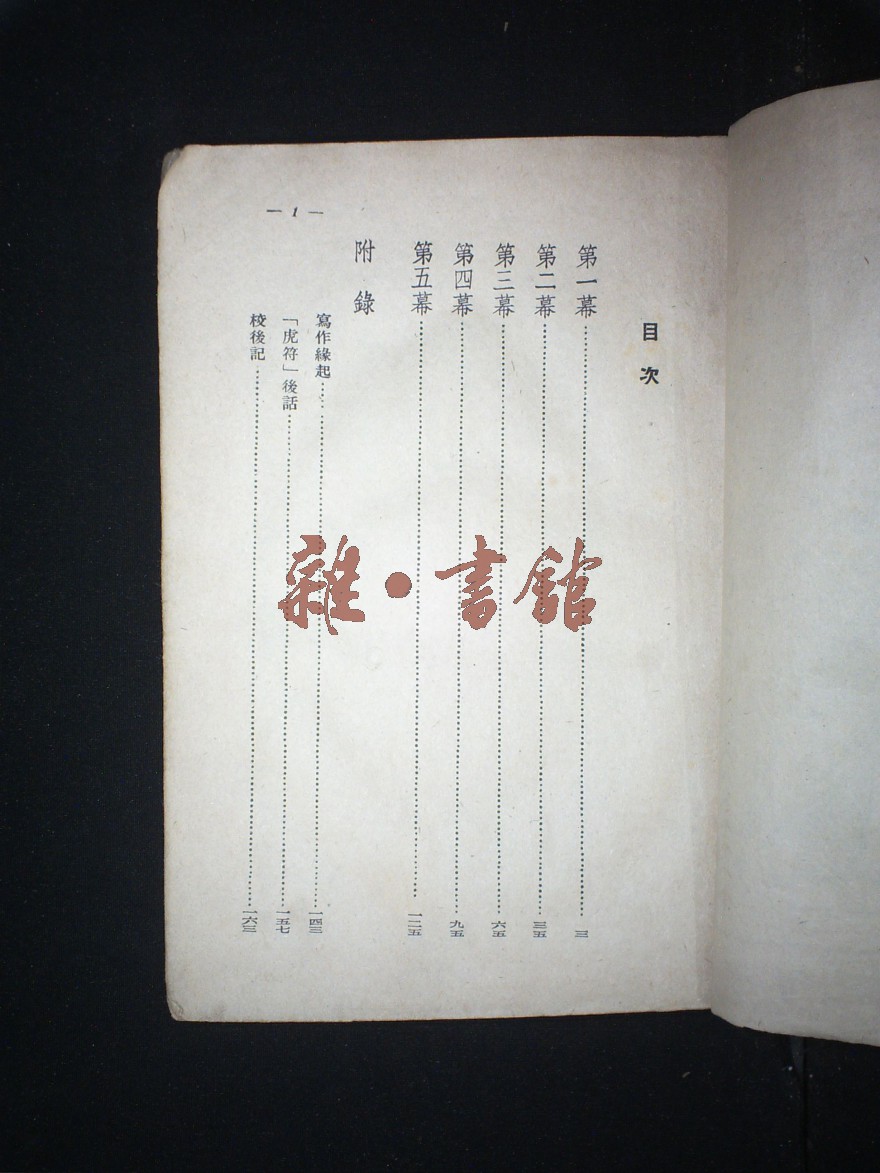 目次
第一幕……三
第二幕……三五
第三幕……六五
第四幕……九五
第五幕……一二五
附錄
寫作緣起……一四三
「虎符」後話……一五七
校後記……一六三
— 1 —
雜·書館